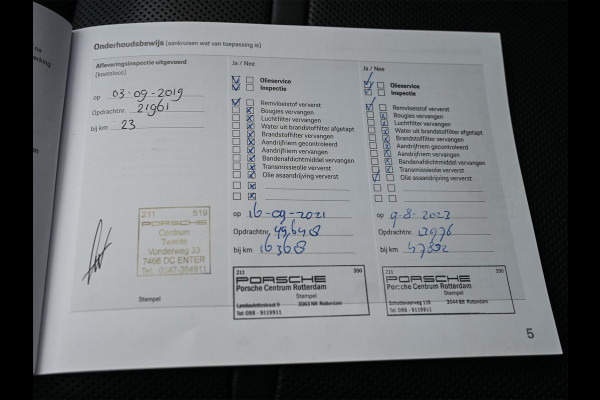 Onderhoudsbewijs (aankruisen wat van toepassing is)
Afleveringsinspectie uitgevoerd
(kosteloos)
op 03-09-2019
Opdrachtnr. 21961
bij km 23
211 519
PORSCHE
Centrum
Twente
Vonderweg 33
7468 DC ENTER
Tel.: 0547-384911
Stempel
Ja / Nee
Olieservice
Inspectie
Remvloeistof ververst
Bougies vervangen
Luchtfilter vervangen
Water uit brandstoffilter afgetapt
Brandstoffilter vervangen
Aandrijfriem gecontroleerd
Aandrijfriem vervangen
Bandenafdichtmiddel vervangen
Transmissieolie ververst
Olie asaandrijving ververst
op 16-09-2021
Opdrachtnr. 496408
bij km 16368
211 350
PORSCHE
Porsche Centrum Rotterdam
Stempel
3063 NR Rotterdam
Tel: 088 - 9119911
Ja / Nee
Olieservice
Inspectie
Remvloeistof ververst
Bougies vervangen
Luchtfilter vervangen
Water uit brandstoffilter afgetapt
Brandstoffilter vervangen
Aandrijfriem gecontroleerd
Aandrijfriem vervangen
Bandenafdichtmiddel vervangen
Transmissieolie ververst
Olie asaandrijving ververst
op 9-8-2023
Opdrachtnr.
bij km
211 350
PORSCHE
Porsche Centrum Rotterdam
Stempel
3044 BB Rotterdam
Tel: 088 - 9119911
5